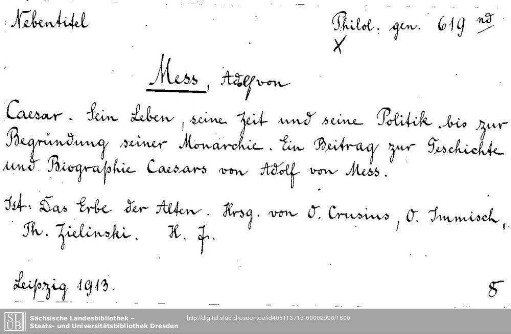 Nebentitel
Philol. gen. 619 nd
X
Mess, Adolf von
Caesar. Sein Leben, seine Zeit und seine Politik bis zur
Begründung seiner Monarchie. Ein Beitrag zur Geschichte
und Biographie Caesars von Adolf von Mess.
Ist: Das Erbe der Alten. Hrsg. von O. Crusius, O. Immisch,
Th. Zielinski. H. 7.
Leipzig 1913.
8
Sächsische Landesbibliothek –
Staats- und Universitätsbibliothek Dresden